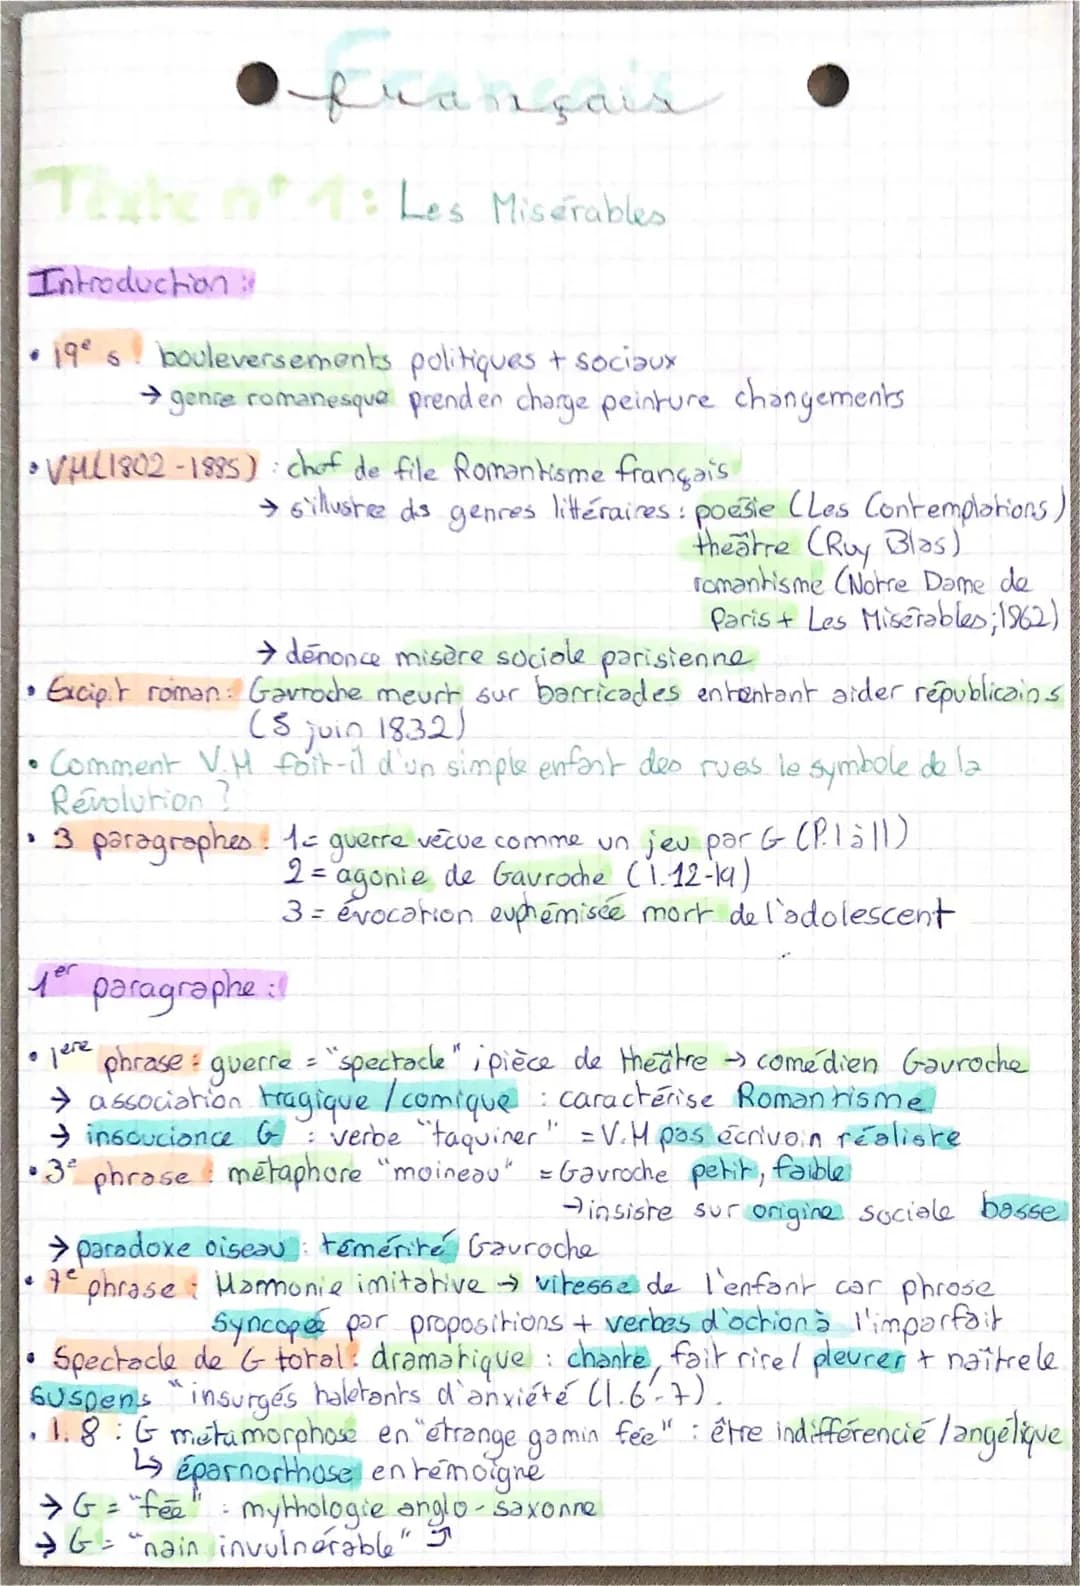 Français
français
Texte n° 1 : Les Misérables
Introduction :
• 19e s : bouleversements politiques + sociaux
→ genre romanesque prend en charge peinture changements
• VH (1802-1885) : chef de file Romantisme français
→ s'illustre ds genres littéraires : poésie (Les Contemplations)
théâtre (Ruy Blas)
romantisme (Notre Dame de
Paris + Les Misérables ; 1862)
→ dénonce misère sociale parisienne
• Excipit roman : Gavroche meurt sur barricades en tentant aider républicains
(5 juin 1832)
• Comment V.H fait-il d'un simple enfant des rues le symbole de la
Révolution ?
• 3 paragraphes : 1 = guerre vécue comme un jeu par G (P.1 à 11)
2 = agonie de Gavroche (l.12-19)
3 = évocation euphémisée mort de l'adolescent
1er paragraphe :
• 1ère phrase : guerre = "spectacle" ; pièce de théâtre → comédien Gavroche
→ association tragique / comique : caractérise Romantisme
→ insouciance G : verbe "taquiner" = V.H pas écrivain réaliste
• 3e phrase : métaphore "moineau" = Gavroche petit, faible
→ insiste sur origine sociale basse
→ paradoxe oiseau : témérité Gavroche
• 7e phrase : Harmonie imitative → vitesse de l'enfant car phrase
Syncopée par propositions + verbes d'action à l'imparfait
• Spectacle de G total : dramatique : chante, fait rire / pleurer + naître le
suspens "insurgés haletants d'anxiété (l.6-7).
• l. 8 : G métamorphose en "étrange gamin fée" : être indifférencié / angélique
↳ éparnorthose en témoigne
→ G = "fée" : mythologie anglo-saxonne
→ G = "nain invulnérable" ⤴